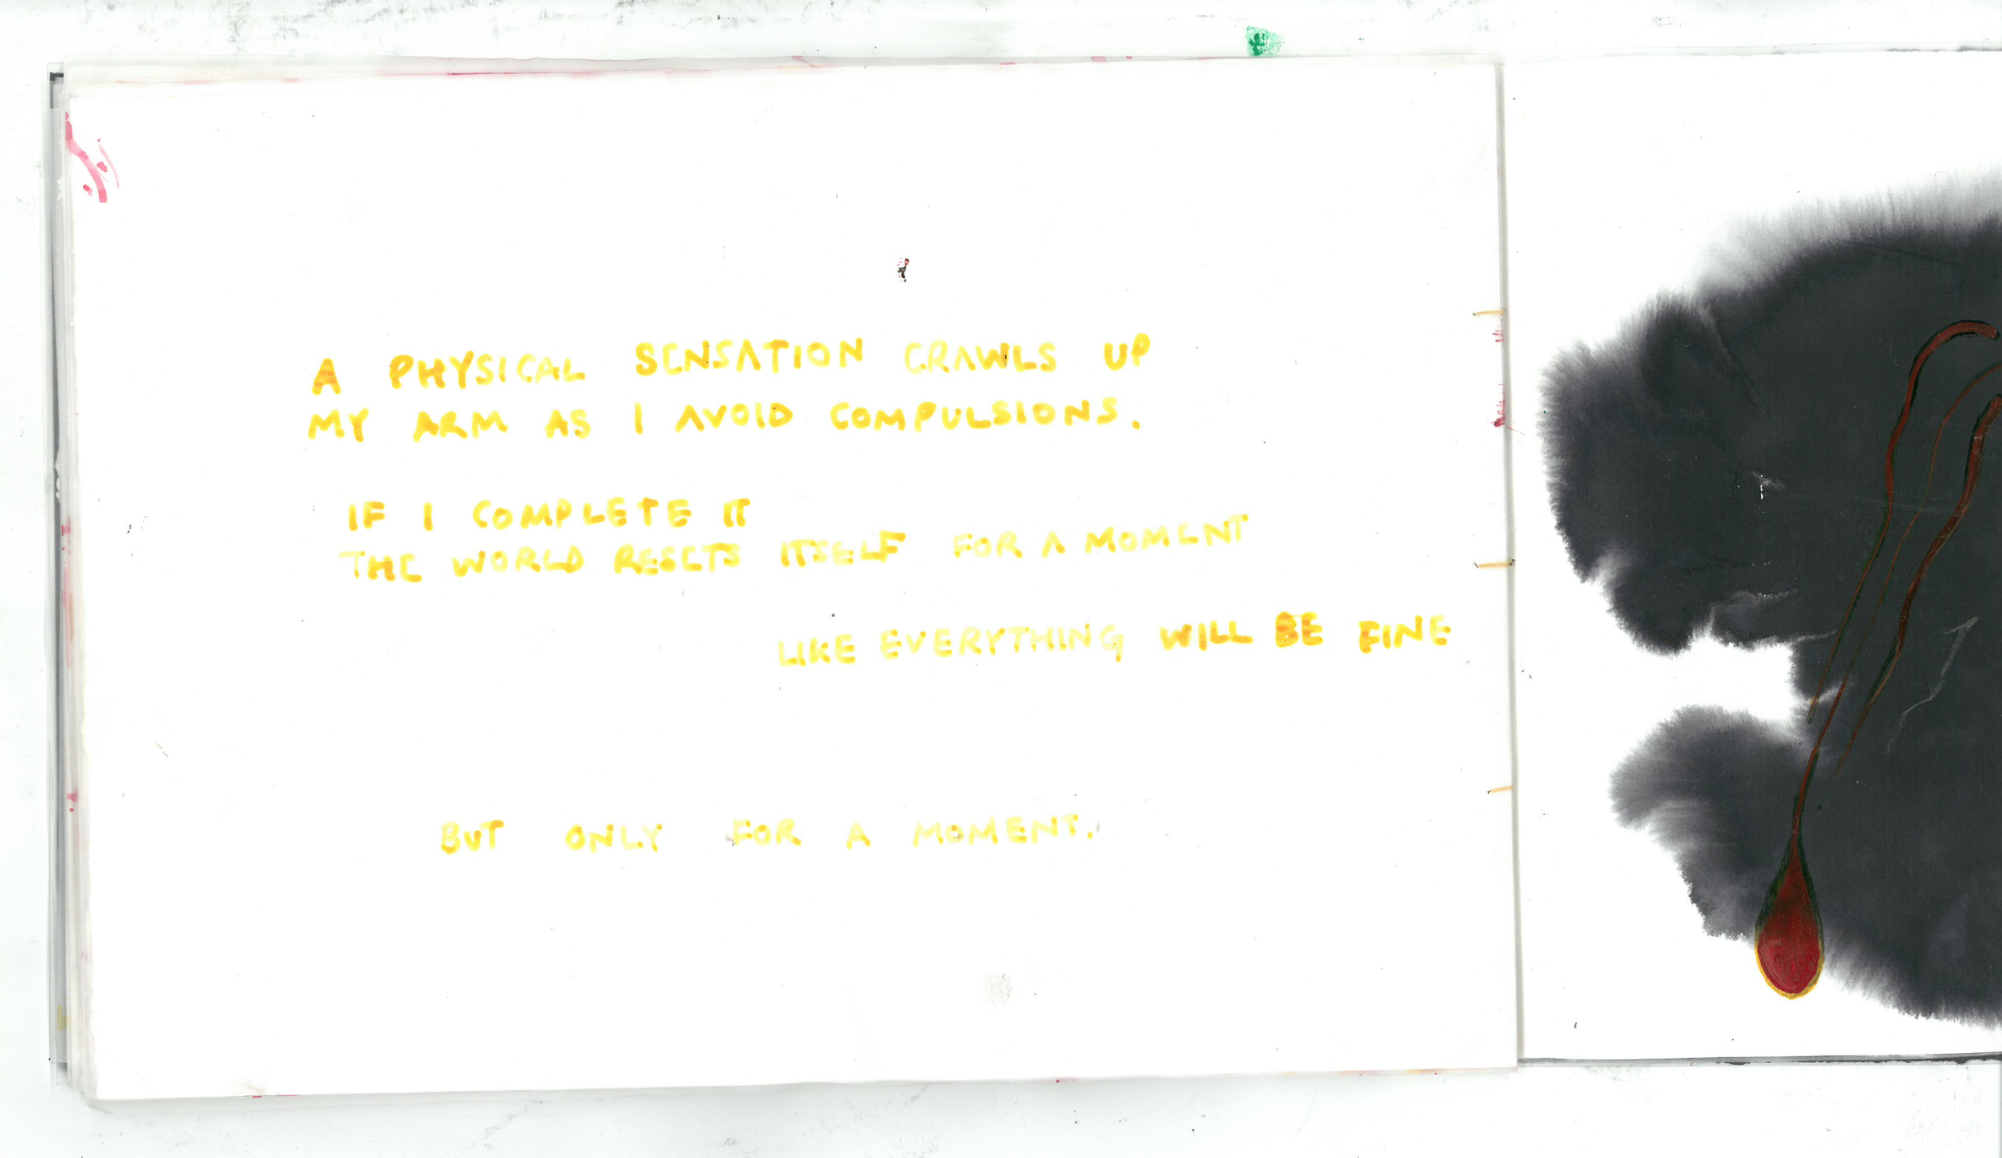 A PHYSICAL SENSATION CRAWLS UP
MY ARM AS I AVOID COMPULSIONS.
IF I COMPLETE IT
THE WORLD RESETS ITSELF FOR A MOMENT
LIKE EVERYTHING WILL BE FINE
BUT ONLY FOR A MOMENT.